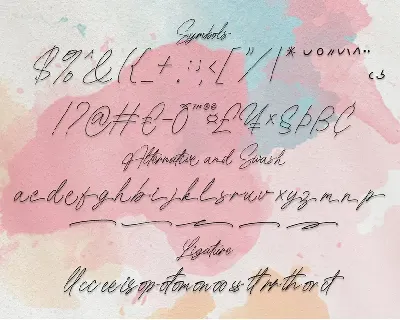 Symbols
$%^&({_+.:;,<[ "/|* ˘ o " \ ^ ¨
!?@#€-õ™®©¤£¥×§þß¢
Alternative and Swash
a c d e f g h b i j k l s r u v x y z m n p
Ligature
ll cc ee is op ot om on oo ss tt rr th or ct